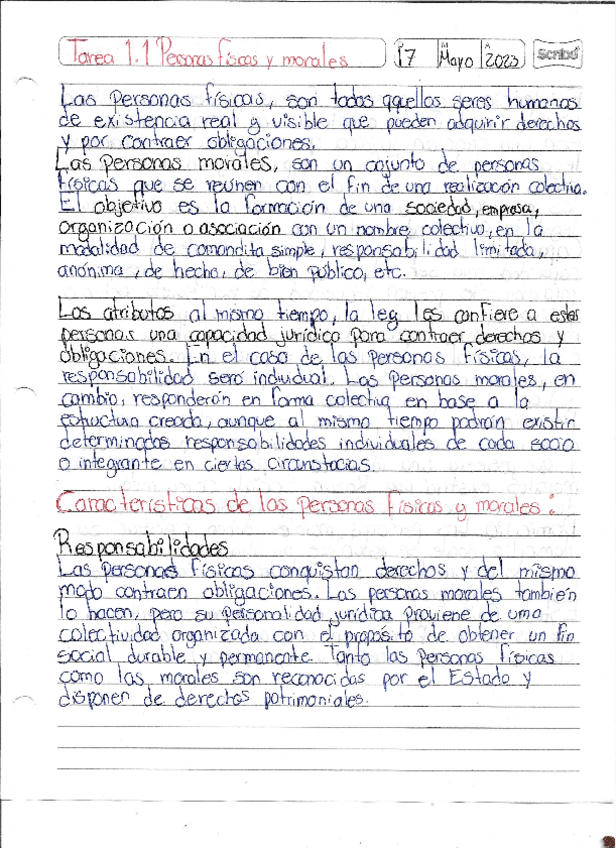 Tarea 1.1 Personas físicas y morales
17 Mayo 2023
Scribe
Las Personas físicas, son todos aquellos seres humanos
de existencia real y visible que pueden adquirir derechos
y por contraer obligaciones.
Las Personas morales, son un conjunto de personas
físicas que se reúnen con el fin de una realización colectiva.
El objetivo es la formación de una sociedad, empresa,
organización o asociación con un nombre colectivo, en la
modalidad de comandita simple, responsabilidad limitada,
anónima, de hecho, de bien público, etc.
Los atributos al mismo tiempo, la ley les confiere a estas
personas una capacidad jurídica para contraer derechos y
obligaciones. En el caso de las Personas físicas, la
responsabilidad será individual. Las Personas morales, en
cambio, responderán en forma colectiva en base a la
estructura creada, aunque al mismo tiempo podrán existir
determinadas responsabilidades individuales de cada socio
o integrante en ciertas circunstacias.
Características de las personas físicas y morales:
Responsabilidades
Las Personas físicas conquistan derechos y del mismo
modo contraen obligaciones. Las personas morales también
lo hacen, pero su Personalidad jurídica proviene de una
colectividad organizada con el propósito de obtener un fin
social durable y permanente. Tanto las Personas físicas
como las morales son reconocidas por el Estado y
disponen de derechos patrimoniales.